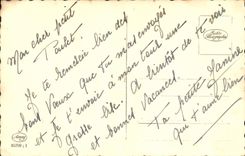 Mon cher petit
Paulet.
Je te remercie bien des
bons Vœux que tu m'as envoyés
et je t'envoie à mon tour une
grosse bise. A bientôt de te voir
et bonnes Vacances.
Ta petite Janine
qui t'aime bien